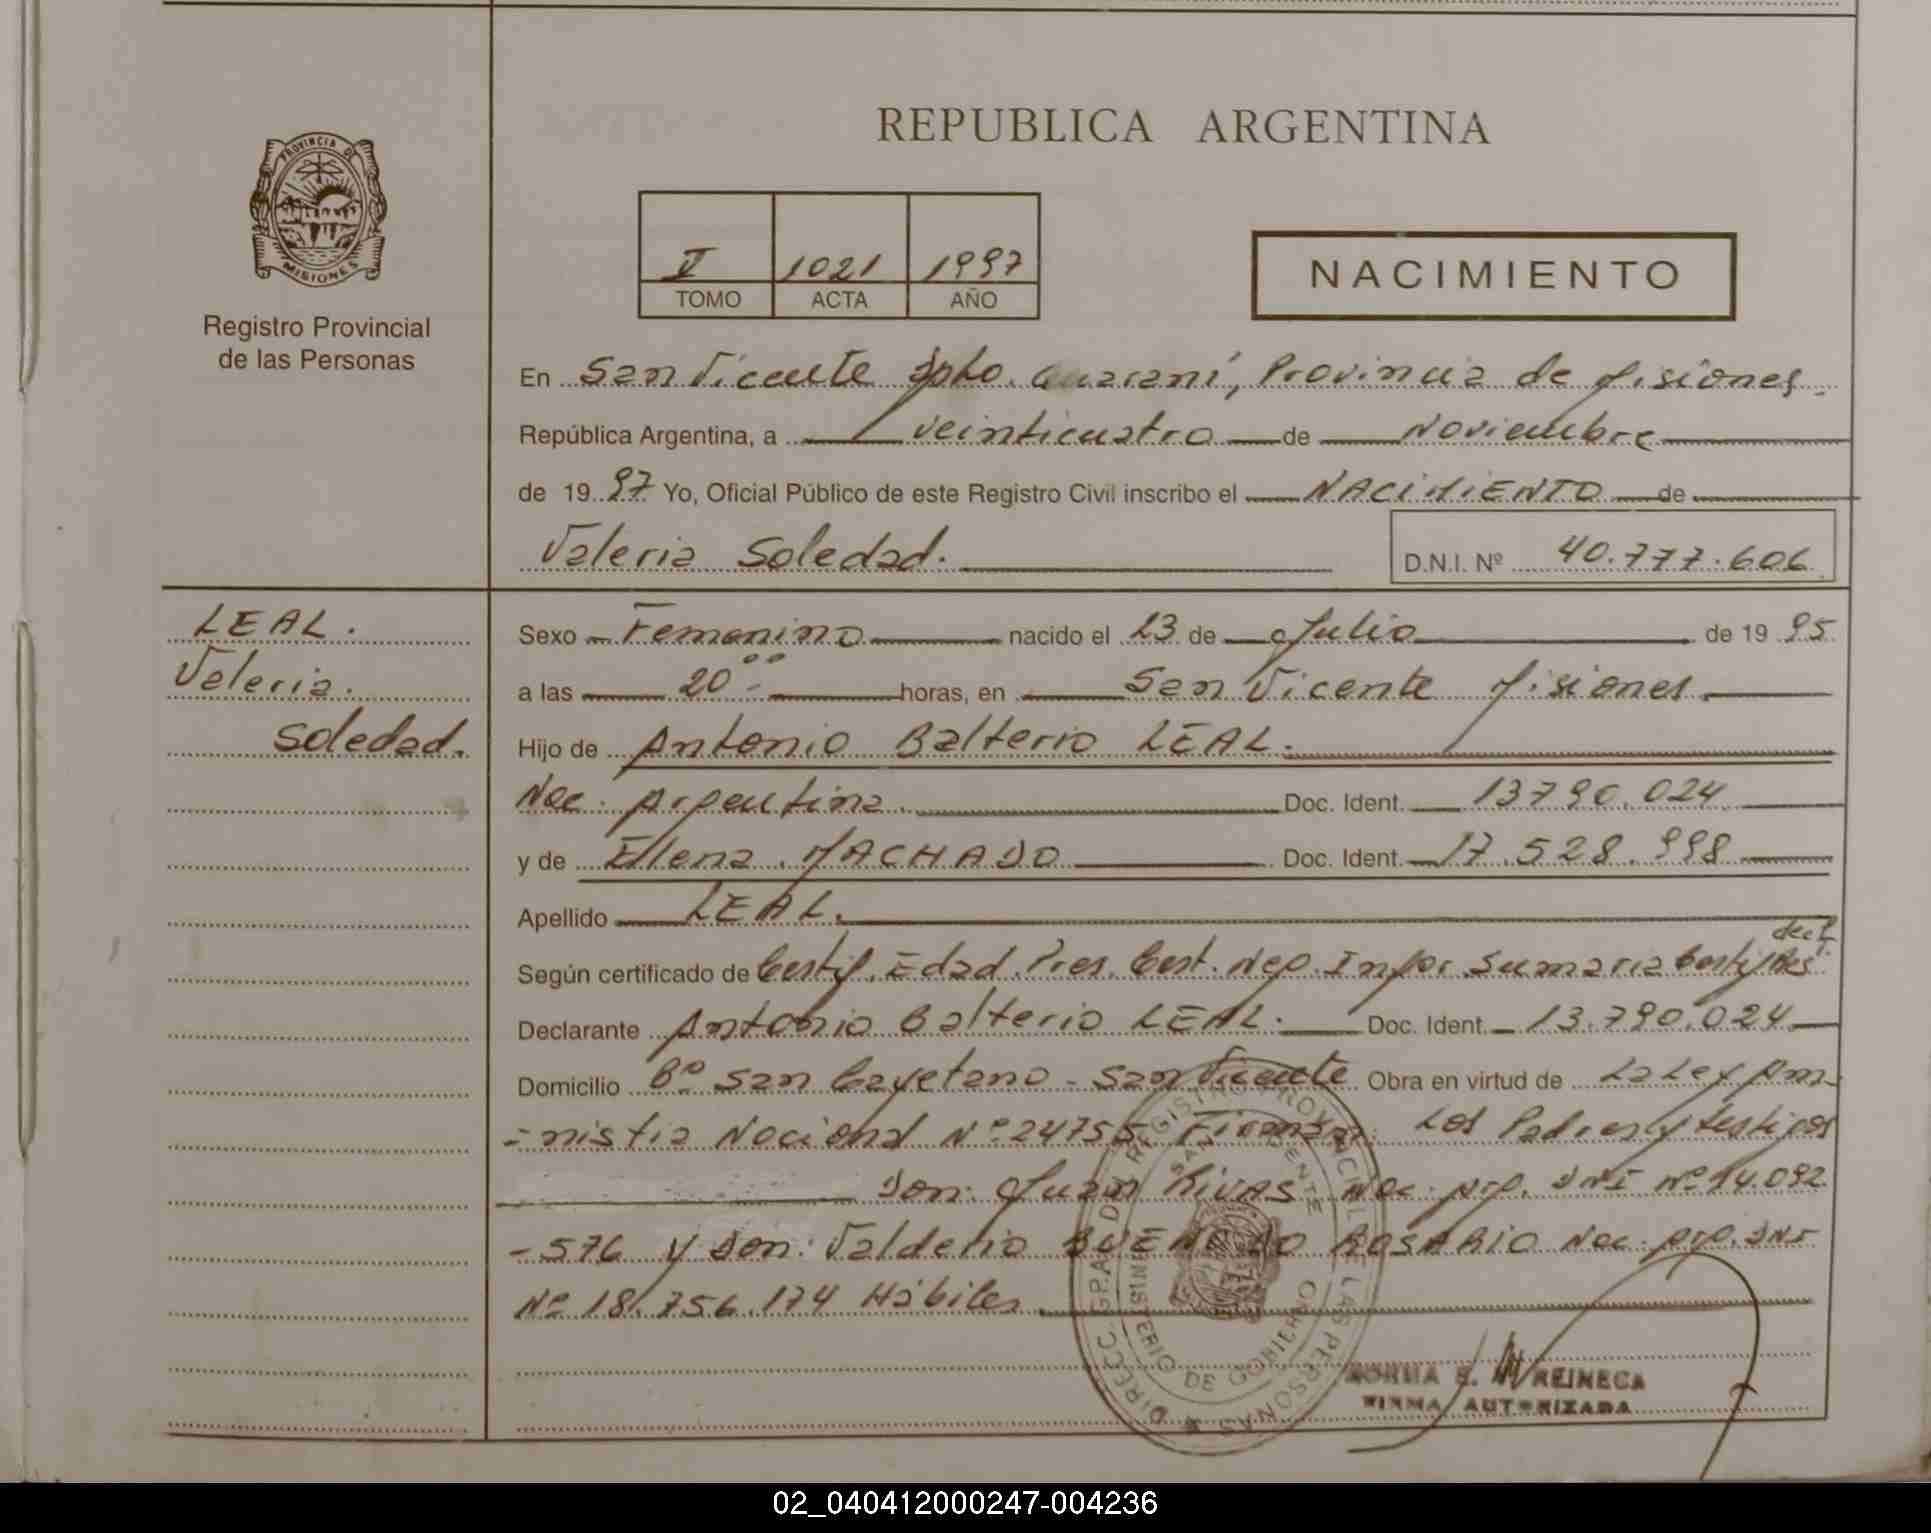 REPUBLICA ARGENTINA
PROVINCIA DE
MISIONES
Registro Provincial
de las Personas
V 1021 1997
TOMO ACTA AÑO
NACIMIENTO
En San Vicente Dpto. Guaraní, Provincia de Misiones.
República Argentina, a veinticuatro de Noviembre
de 1997 Yo, Oficial Público de este Registro Civil inscribo el NACIMIENTO de
Valeria Soledad.
D.N.I. Nº 40.777.606
LEAL.
Valeria.
Soledad.
Sexo Femenino nacido el 23 de Julio de 1995
a las 20 ºº horas, en San Vicente Misiones
Hijo de Antonio Balterio LEAL.
Nac. Argentina. Doc. Ident. 13790.024
y de Elena MACHADO Doc. Ident. 17.528.998
Apellido LEAL.
Según certificado de Certif. Edad. Pres. Cert. Neg. Infor. Sumaria Certif.
Declarante Antonio Balterio LEAL. Doc. Ident. 13.790.024
Domicilio Bº San Cayetano - San Vicente Obra en virtud de La Ley Am-
-nistia Nacional Nº 24755 Firman: Los Padres y testigos
Don: Juan RIVAS Nac. Arg. DNI Nº 14.092
-576 y Don: Valderio BUENO DO ROSARIO Nac. Arg. DNI
Nº 18.756.174 Hábiles
DIRECC. GRAL. DEL REGISTRO PROVINCIAL DE LAS PERSONAS
SAN VICENTE
MINISTERIO DE GOBIERNO
NORMA E. REINECA
FIRMA AUTORIZADA
02_040412000247-004236